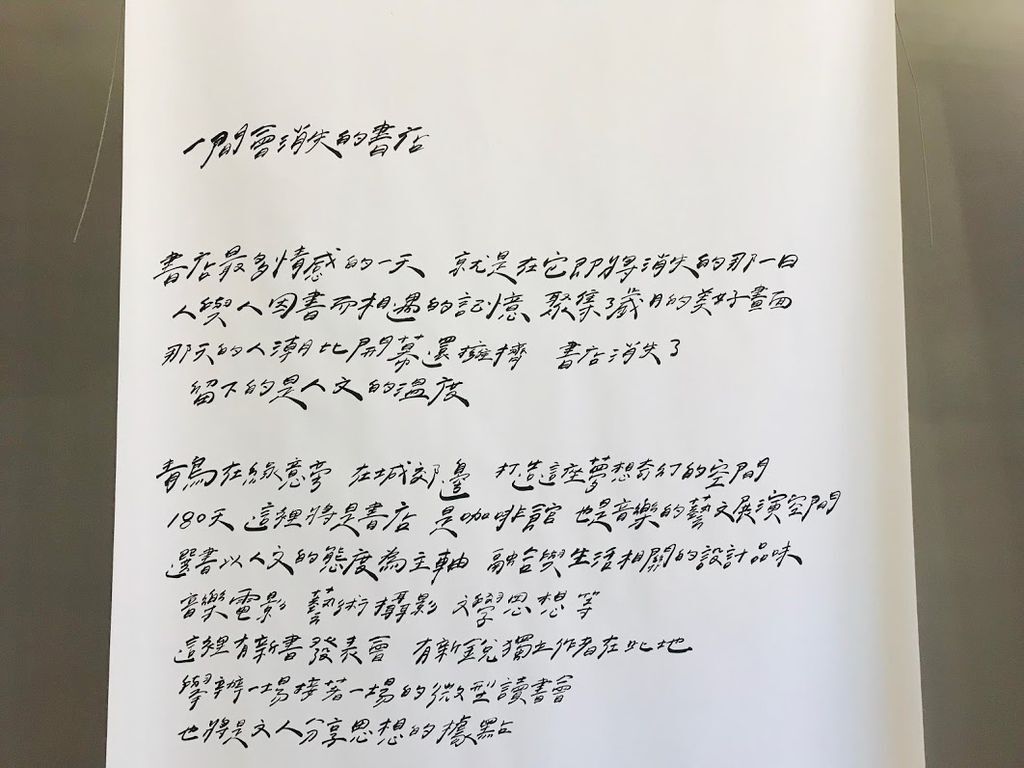 一間會消失的書店
書店最多情感的一天 就是在它即將消失的那一日
人與人因書而相遇的記憶 聚集了歲月的美好畫面
那天的人潮比開幕還擁擠 書店消失了
留下的是人文的溫度
青鳥在綠意彎 在城郊邊 打造這座夢想奇幻的空間
180天 這裡將是書店 是咖啡館 也是音樂的藝文展演空間
選書以人文的態度為主軸 融合與生活相關的設計品味
音樂電影 藝術攝影 文學思想 等
這裡有新書發表會 有新銳獨立作者在此地
舉辦一場接著一場的微型讀書會
也將是文人分享思想的據點